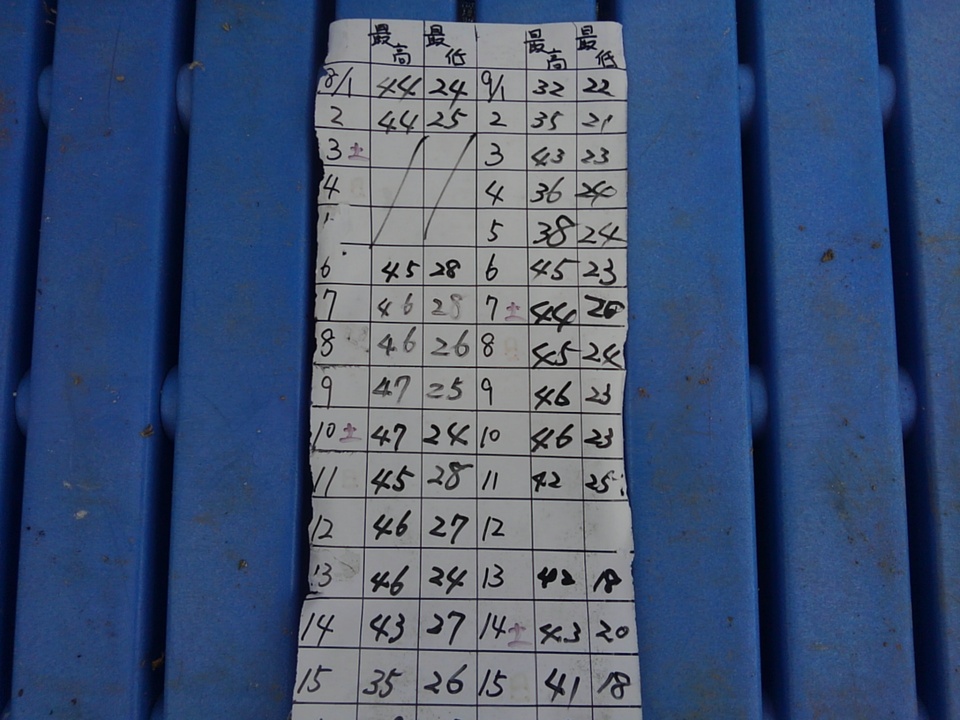 最高 最低 最高 最低
8/1 44 24 9/1 32 22
2 44 25 2 35 21
3土 3 43 23
4 4 36 20
5 38 24
6 45 28 6 45 23
7 46 28 7土 44 20
8 46 26 8 45 24
9 47 25 9 46 23
10土 47 24 10 46 23
11 45 28 11 42 25
12 46 27 12
13 46 24 13 42 18
14 43 27 14土 43 20
15 35 26 15 41 18